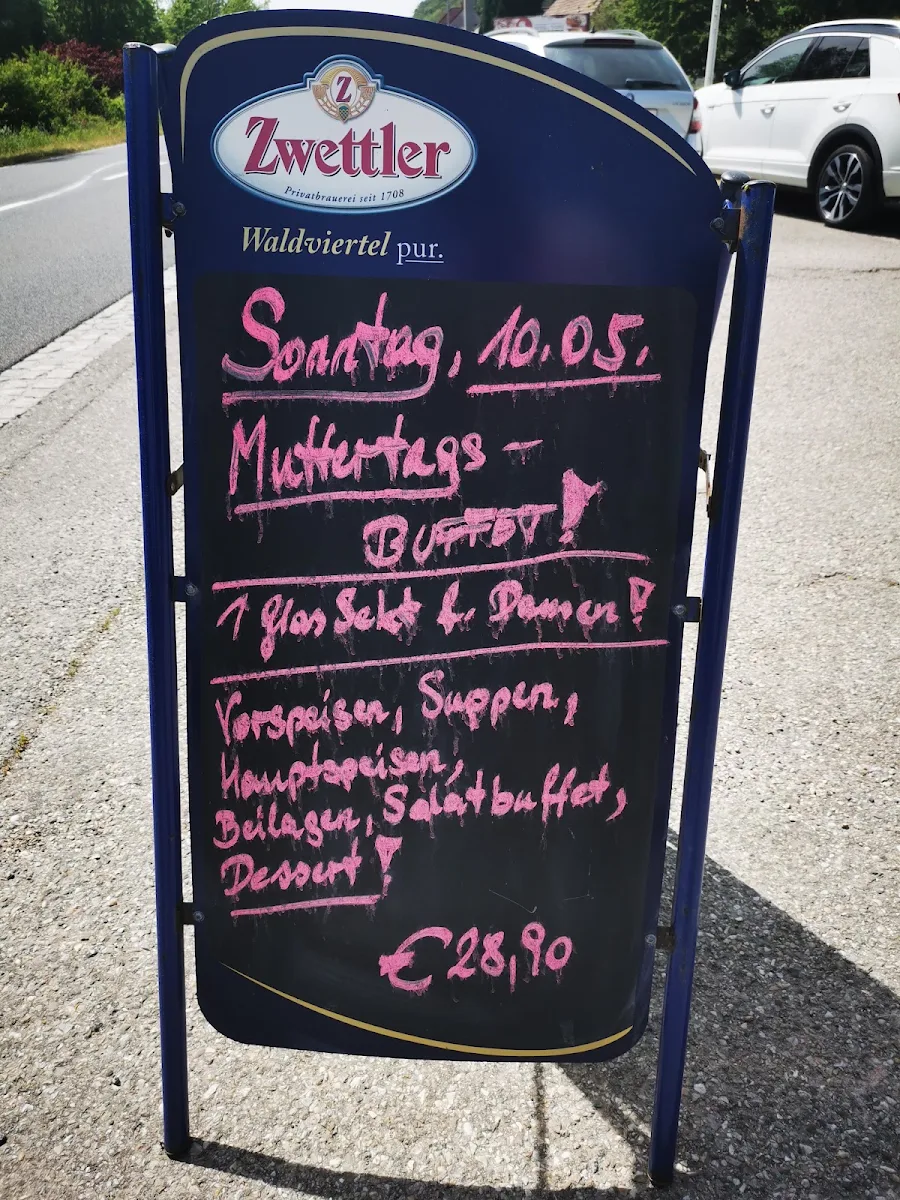 Z
Zwettler
Privatbrauerei seit 1708
Waldviertel pur.
Sonntag, 10.05.
Muttertags -
BUFFET!
1 Glas Sekt f. Damen!
Vorspeisen, Suppen,
Hauptspeisen,
Beilagen, Salatbuffet,
Dessert!
€28,90